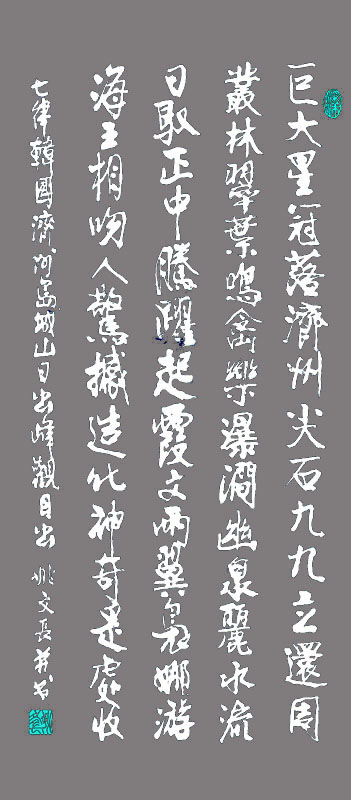 巨大星冠落濟州尖石九九立還周
叢林翠葉鳴禽樂瀑澗幽泉麗水流
日馭正中騰躍起霞文兩翼裊娜游
海上相吻人驚撼造化神奇是處收
七律韓國濟州島城山日出峰觀日出 姚文長并书